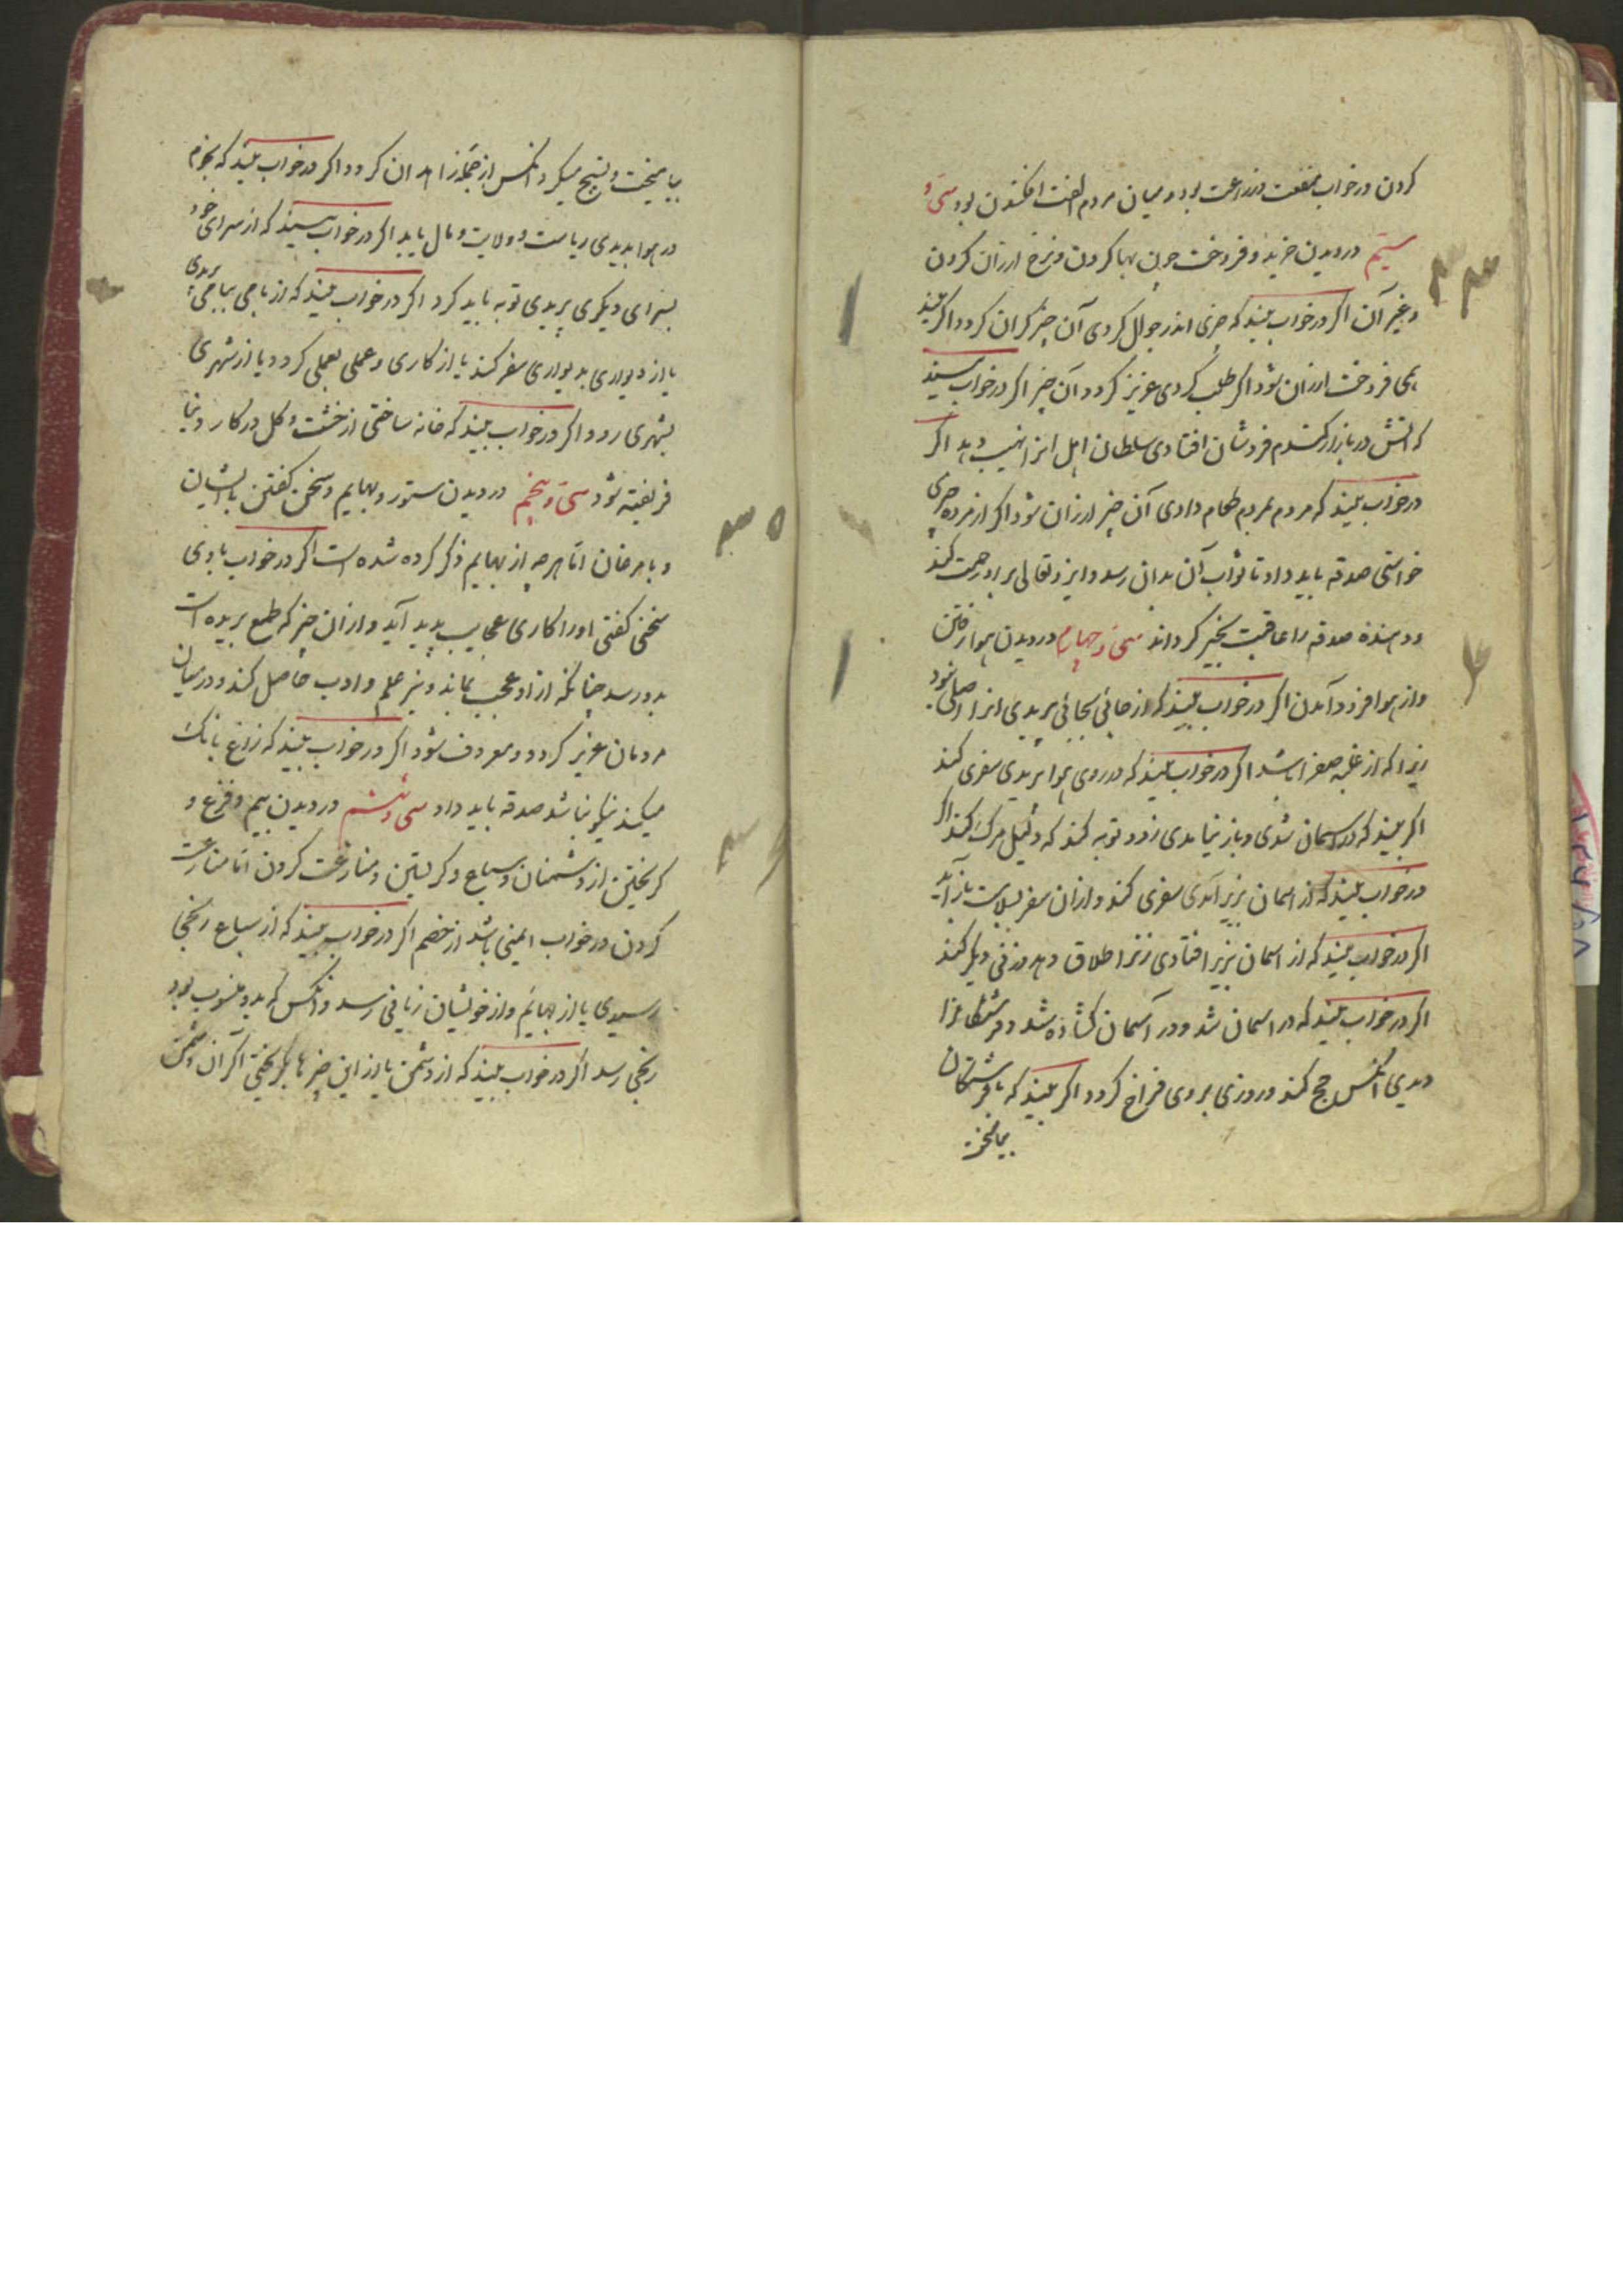 کردن در خواب منفعت وزراعت بود و میان مردم الفت افکندن بود سی و
سیم در دیدن خرید و فروخت چون بها کردن و نرخ ارزان کردن
و غیر آن اکر در خواب بیند که چیزی اندر جوال کردی آن چیز کران کردد و اکر بیند
همی فروخت ارزان شود اکر طلب کردی عزیز کردد آن چیز اکر در خواب بیند
که اتش در بازار کندم فروشان افتادی سلطان اهل انرا نهیب دهد اکر
در خواب بیند که مردم بمردم طعام دادی آن چیز ارزان شود اکر از مرده چیزی
خواستی صدقه باید داد تا ثواب آن بدان رسد و ایزد تعالی بر او رحمت کند
و دهنده صدقه را عاقبت بخیر کرداند سی و چهارم در دیدن بهوا رفتن
و از هوا فرود آمدن اکر در خواب بیند که از جائی بجائی پریدی انرا اصلی نبود
زیرا که از غلبه صفرا باشد اکر در خواب بیند که در روی هوا پریدی سفری کند
اکر بیند که در اسمان شدی و باز نیامدی زود توبه کند که دلیل مرک کند اکر
در خواب بیند که از اسمان بزیر آمدی سفری کند و از ان سفر بسلامت باز آید
اکر در خواب بیند که از اسمان بزیر افتادی زنرا طلاق دهد و زنی دیکر کند
اکر در خواب بیند که در اسمان شد و در آسمان کشاده شد و فرشتکانرا
دیدی انکس حج کند و روزی بر وی فراخ کردد اکر بیند که با فرشتکان
بیامیخت
بیامیخت و تسبیح میکرد انکس از جمله زاهدان کردد اکر در خواب بیند که بجرم
در هوا بدیدی ریاست و ولایت و مال یابد اکر در خواب بیند که از سرای خود
بسرای دیکری پریدی توبه باید کرد اکر در خواب بیند که از بامی ببامی پریدی
یا از دیواری بدیواری سفر کند یا از کاری و عملی بعملی کردد یا از شهری
بشهری رود اکر در خواب بیند که خانه ساختی از خشت و کل در کار دنیا
فریفته شود سی و پنجم در دیدن ستور و بهایم و سخن کفتن با ایشان
و با مرغان امّا هر چه از بهایم ذکر کرده شده است اکر در خواب با وی
سخن کفتی او را کاری عجایب پدید آید و از ان چیز که طمع بریده است
بدو رسد چنانکه از او عجب بماند و نیز علم و ادب حاصل کند و در میان
مردمان عزیز کردد و معروف شود اکر در خواب بیند که زاغ بانک
میکند نیکو نباشد صدقه باید داد سی و ششم در دیدن بیم و فزع و
کریختن از دشمنان و سباع و کریستن و منازعت کردن امّا منازعت
کردن در خواب ایمنی باشد از خصم اکر در خواب بیند که از سباع رنجی
رسیدی یا از بهایم و از خویشان زیانی رسد و انکس که بدو منسوب بود
رنجی رسد اکر در خواب بیند که از دشمن یا از این چیزها بکریختی اکر آن دشمن
۳۳
۴
۳۵
۳۶